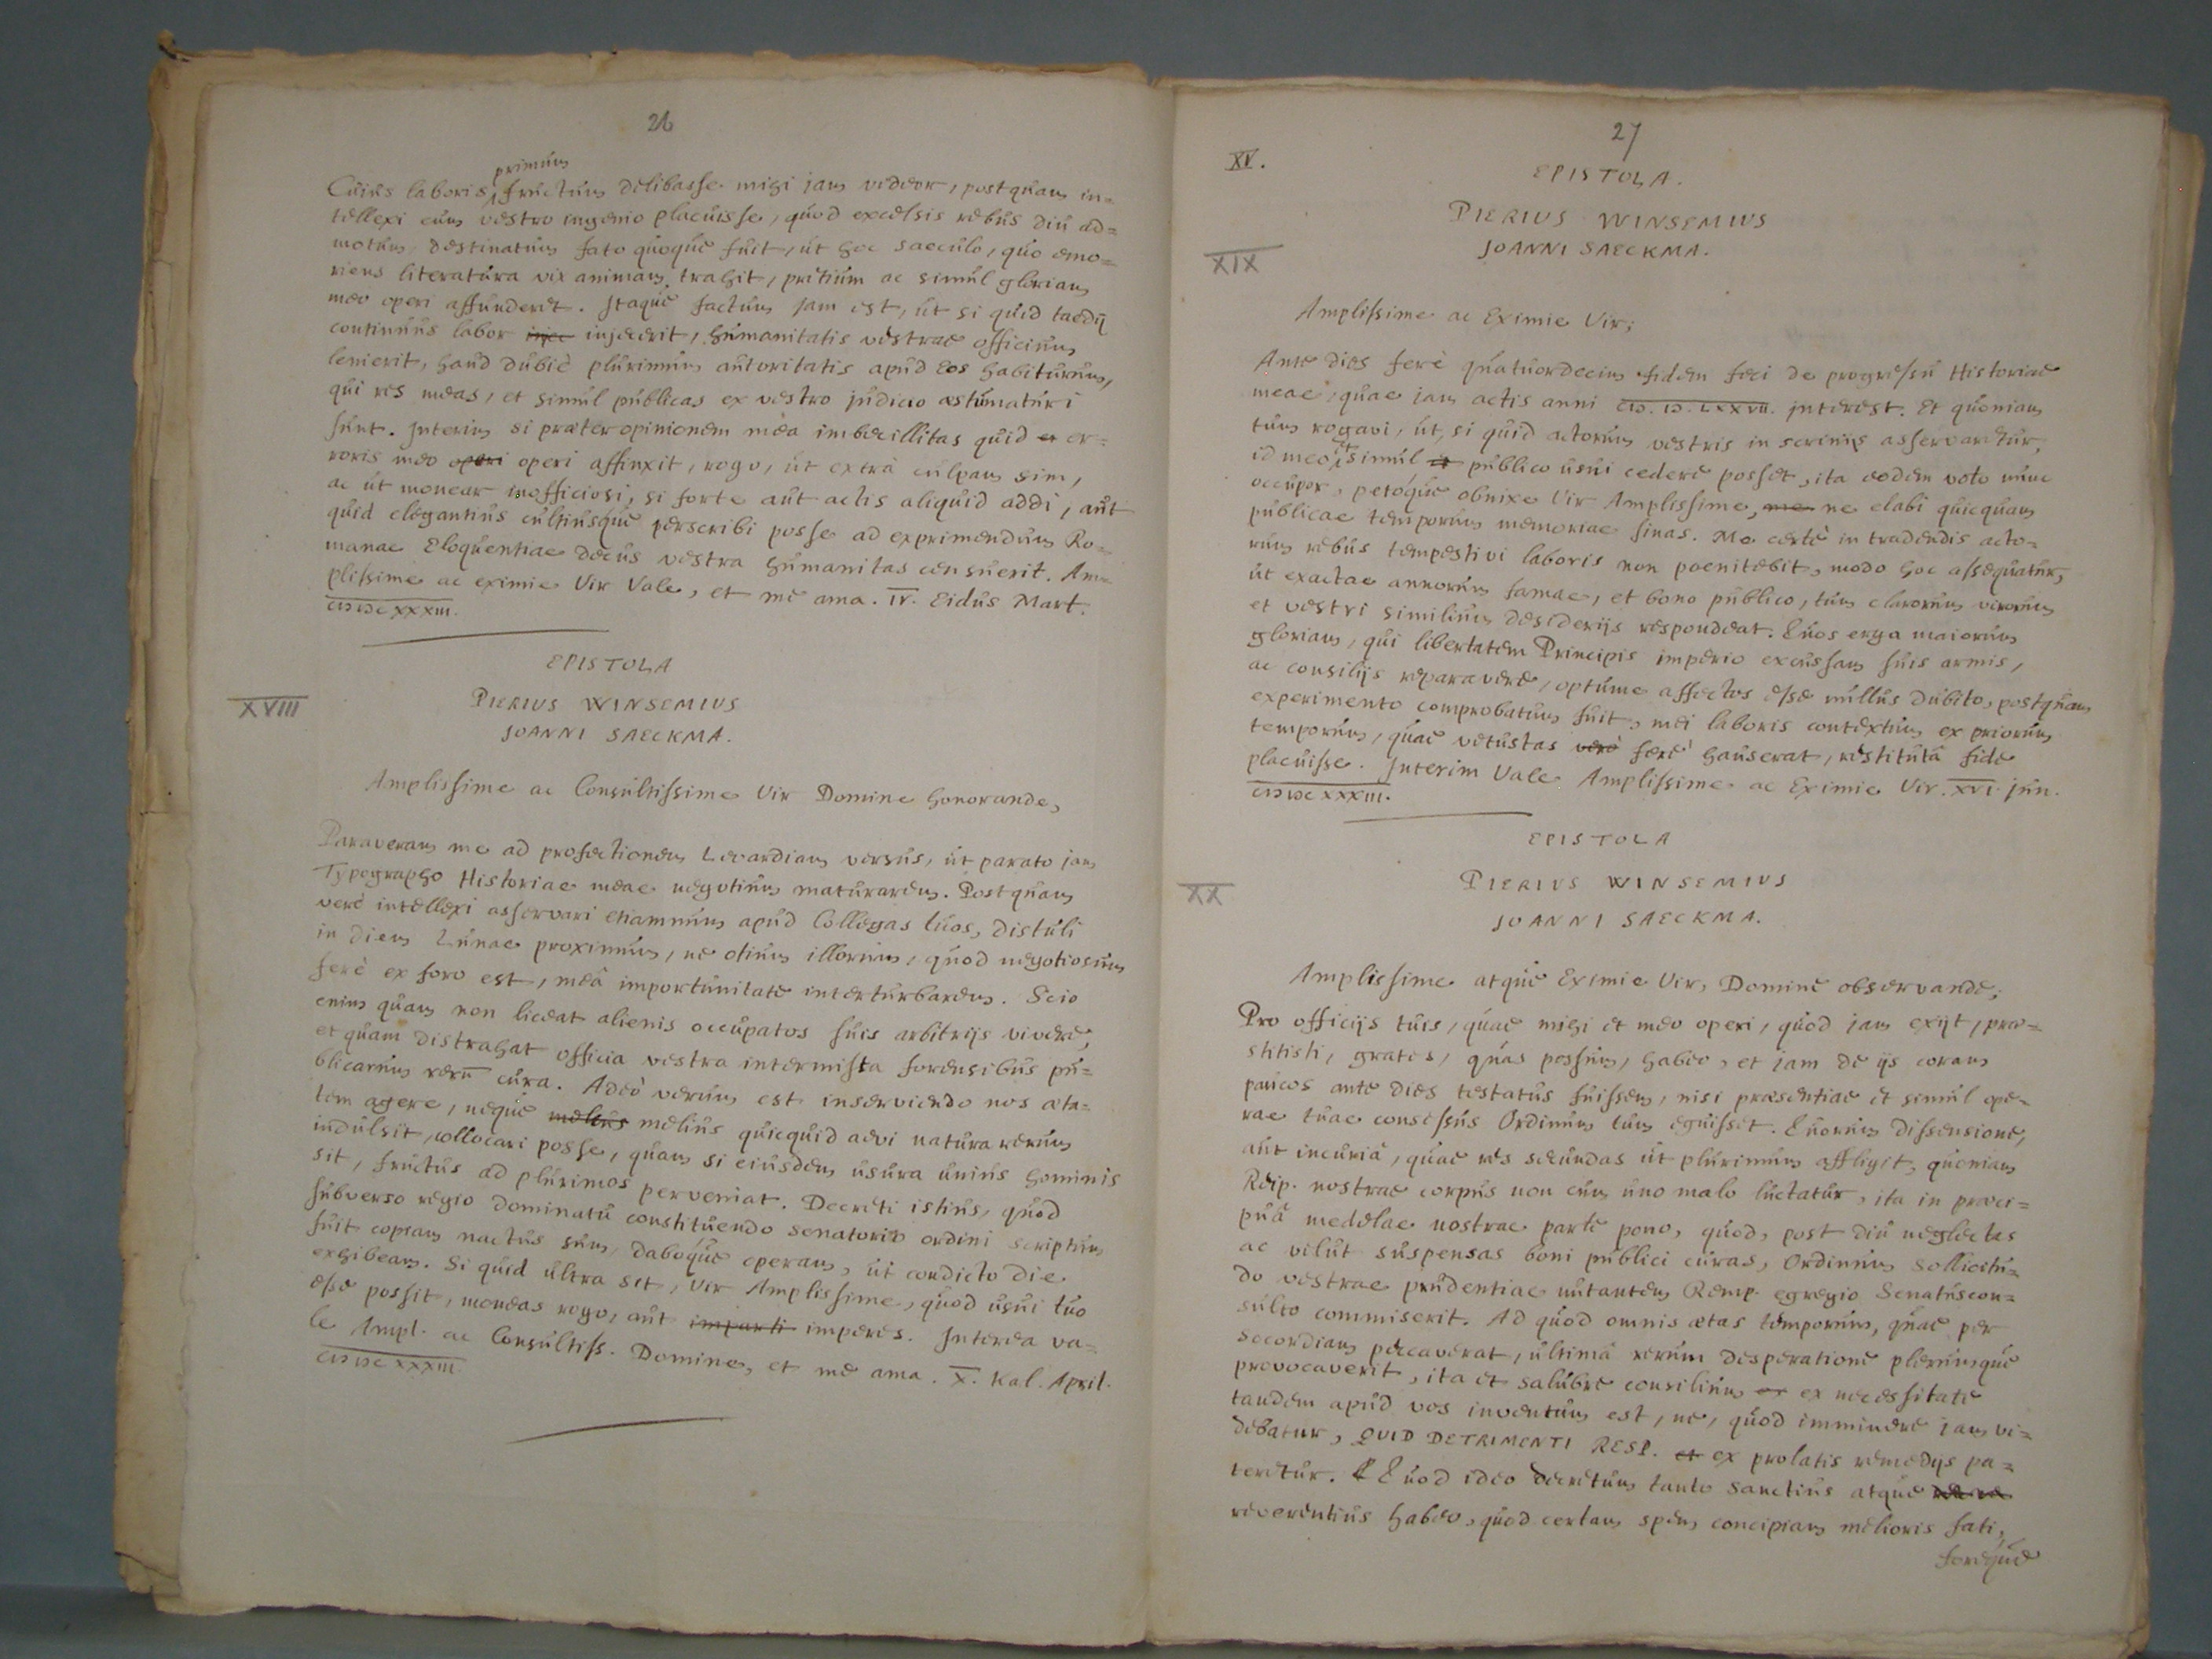 26
Cuius laboris primum fructum delibasse mihi jam videor, postquam in=
tellexi eum vestro ingenio placuisse, quod excelsis rebus diu ad=
motum, destinatum fato quoque fuit, ut hoc saeculo, quo emo=
riens literatura vix animam trahit, pritium ac simul gloriam
meo operi affunderet. Itaque factum jam est, ut si quid taedij
continuus labor injec injecerit, humanitatis vestrae officium
lenierit, haud dubiè plurimum autoritatis apud eos habiturum,
qui res meas, et simul publicas ex vestro judicio aestumaturi
sunt. Interim si praeter opinionem mea imbecillitas quid er er=
roris meo operi operi affinxit, rogo, ut extrà culpam sim,
ac ut monear inofficiosi, si forte aut actis aliquid addi, aut
quid elegantius cultiusque perscribi posse ad exprimendum Ro=
manae Eloquentiae decus vestra humanitas censuerit. Am=
plissime ac eximie Vir Vale, et me ama. IV. Eidus Mart.
CIƆ IƆC XXXIII.
EPISTOLA
XVIII
PIERIUS WINSEMIUS
JOANNI SAECKMA.
Amplissime ac Consultissime Vir Domine honorande,
Paraveram me ad profectionem Leoardiam versus, ut parato jam
Typographo Historiae meae negotium maturarem. Postquam
verò intellexi asservari etiamnum apud Collegas tuos, distuli
in diem Lunae proximum, ne otium illorum, quod negotiosum
ferè ex foro est, meâ importunitate interturbarem. Scio
enim quam non liceat alienis occupatos suis arbitrijs vivere,
et quam distrahat officia vestra intermista forensibus pu=
blicarum rerū cura. Adeò verum est inserviendo nos aeta=
tem agere, neque melius melius quicquid aevi natura rerum
indulsit, collocari posse, quam si eiusdem usura unius hominis
sit, fructus ad plurimos perveniat. Decreti istius, quod
subverso regio dominatu constituendo senatorio ordini scriptum
fuit copiam nactus sum, daboque operam, ut condicto die
exhibeam. Si quid ultra sit, Vir Amplissime, quod usui tuo
esse possit, moneas rogo, aut imparti imperes. Interea va=
le Ampl. ac Consultiss. Domine, et me ama. X. Kal. April.
CIƆ IƆC XXXIII.
27
XV.
EPISTOLA.
PIERIUS WINSEMIUS
JOANNI SAECKMA.
XIX
Amplissime ac Eximie Vir;
Ante dies ferè quatuordecim fidem feci de progressu Historiae
meae, quae jam actis anni CIƆ. IƆ. LXXVII. interest. Et quoniam
tum rogavi, ut, si quid actorum vestris in scrinijs asservaretur,
id meo, et simul et publico usui cedere posset, ita eodem voto nunc
occupor, petoque obnixe Vir Amplissime, me ne elabi quicquam
publicae temporum memoriae sinas. Me certè in tradendis acto=
rum rebus tempestivi laboris non poenitebit, modo hoc assequatur,
ut exactae annorum famae, et bono publico, tum clarorum virorum
et vestri similium desiderijs respondeat. Quos erga maiorum
gloriam, qui libertatem Principis imperio excussam suis armis,
ac consilijs reparavere, optume affectos esse nullus dubito, postquam
experimento comprobatum fuit, mei laboris contextum ex priorum
temporum, quae vetustas verò ferè hauserat, restitutâ fide
placuisse. Interim Vale Amplissime ac Eximie Vir. XVI. Jun.
CIƆ IƆC XXXIII.
EPISTOLA
XX
PIERIUS WINSEMIUS
JOANNI SAECKMA.
Amplissime atque Eximie Vir, Domine observande;
Pro officijs tuis, quae mihi et meo operi, quod jam exijt, prae=
stitisti, grates, quas possum, habeo, et jam de ijs coram
paucos ante dies testatus fuissem, nisi praesentiae et simul ope=
rae tuae consessus Ordinum tum eguisset. Quorum dissensione,
aut incuriâ, quae res secundas ut plurimum affligit, quoniam
Reip. nostrae corpus non cum uno malo luctatur, ita in praeci=
puâ medelae nostrae parte pono, quod, post diu neglectas
ac velut suspensas boni publici curas, Ordinum sollicitu=
do vestrae prudentiae nutantem Remp. egregio Senatuscon=
sulto commiserit. Ad quod omnis aetas temporum, quae per
secordiam peccaverat, ultimâ rerum desperatione plerumque
provocaverit, ita et salubre consilium ex ex necessitate
tandem apud vos inventum est, ne, quod imminere jam vi=
debatur, QUID DETRIMENTI RESP. et ex prolatis remedijs pa=
teretur. Quod ideo decretum tanto sanctius atque
reverentius habeo, quod certam spem concipiam melioris fati,
foreque